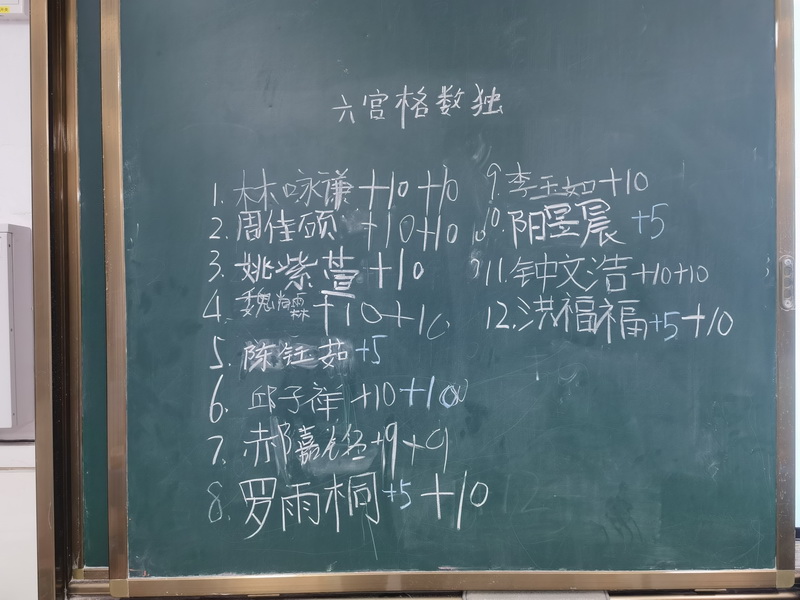 六宫格数独
1. 林咏谦+10+10
2. 周佳硕+10+10
3. 姚紫萱+10
4. 魏霖+10+10
5. 陈钰茹+5
6. 邱子祥+10+100
7. 郝嘉铭+9+9
8. 罗雨桐+5+10
9. 李玉如+10
10. 阳昱晨+5
11. 钟文浩+10+10
12. 洪福福+5+10